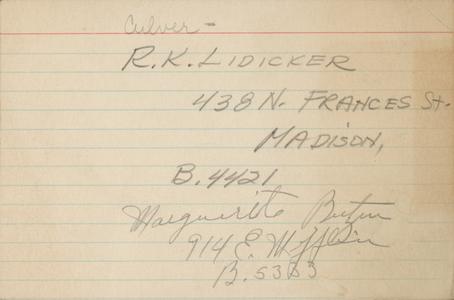 Culver -
R.K. LIDICKER
438 N. FRANCES St.
MADISON,
B. 4421
Marguerite
914 E. Mifflin
B. 5383